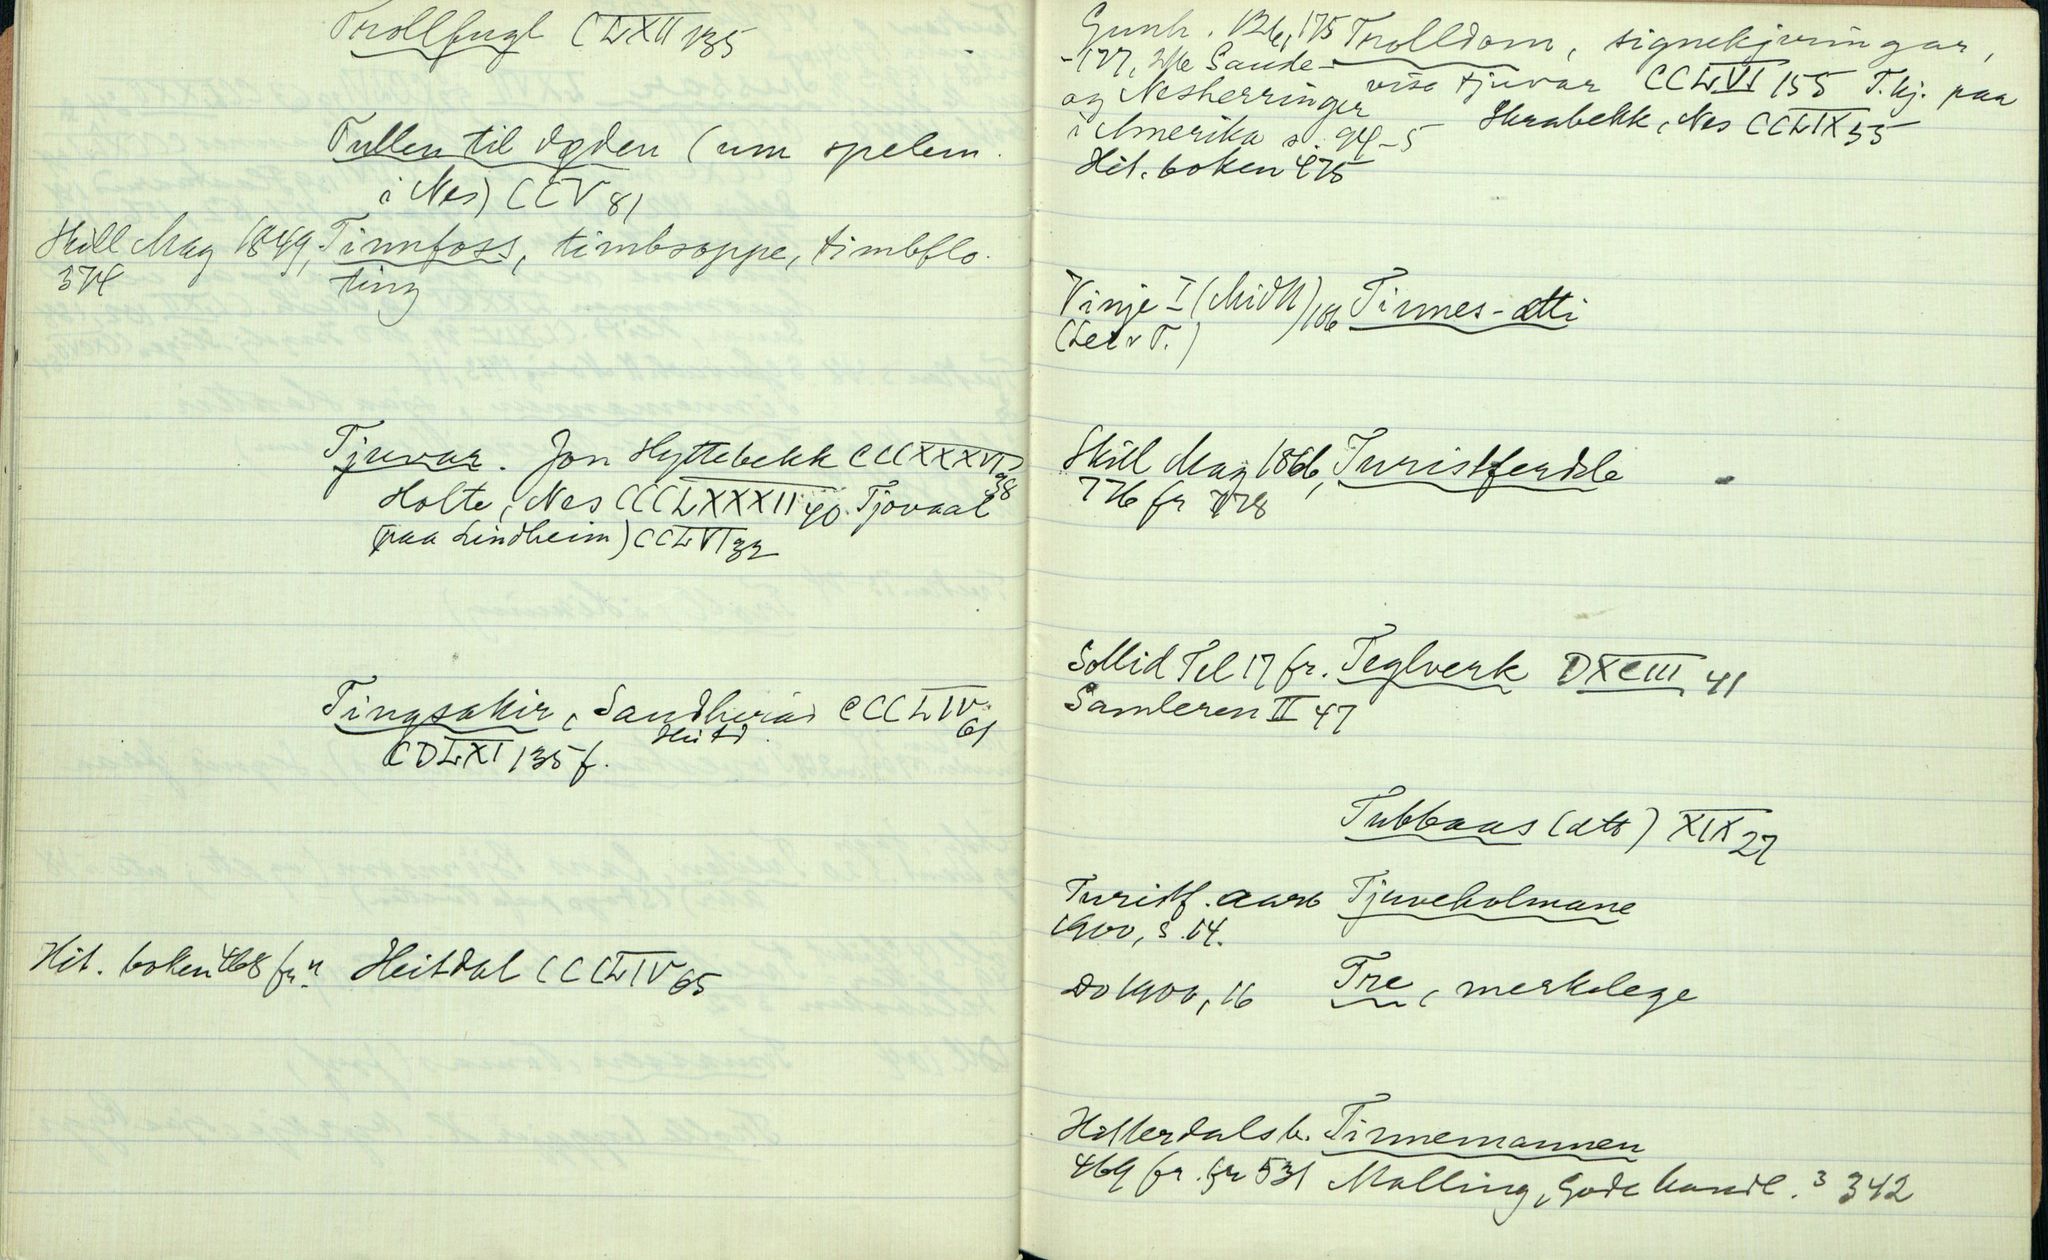 Trollfugl CLXII 135
Tullen til døden (um spelem.
i Nes) CCV 81
Skill Mag 1849, Tinnfoss, timbsoppe, timbflo-
374 ting
Tjuvar. Jon Hyttebekk CCCXXXVI 38
Holte, Nes CCCLXXXII 40. Tjovaal
(paa Lindheim) CCLVI 32
Tingsakir, Sandherad CCCLIV 61
Heitd.
CDLXI 135 f.
Hit. boken 468 fr. " Heitdal CCCLIV 65
Gunh. 126, 175 Trolldom, signekjeringar,
-177, Saude-
vise tjuvar CCLVI 155 T.kj. paa
og Nesherringer
Skrabekk, Nes CCLIX 55
i Amerika s. 94-5
Hit. boken 475
Vinje I (Midtl) 106 Tinnes-ætti
(Lei v T.)
Skill Mag 1866, Turistferdsle
776 fr 778
Sollid Tel 17 fr. Teglverk DXCIII 41
Samleren II 47
Tubbaas (ætt) XIX 27
Turistf. aarb Tjuveholmane
1900, s. 14.
Do 1900, 16 Tre, merkelege
Hitterdalsb. Tinnemannen
469 fr. fr 531 Malling, Gode handl. 3 342